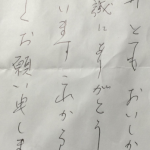 とても おいしか
誠にありがとう
います これから
くお願い申しま